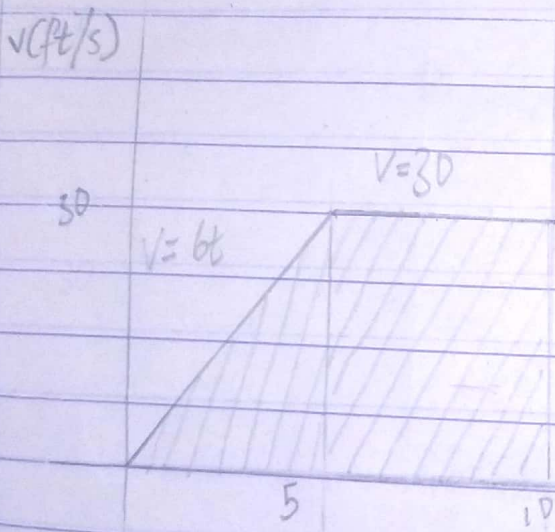 v(ft/s)
V=30
30
V=6t
5
10